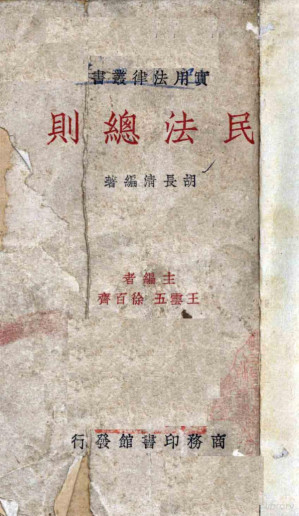 實用法律叢書
民法總則
胡長清編著
主編者
王雲五 徐百齊
商務印書館發行